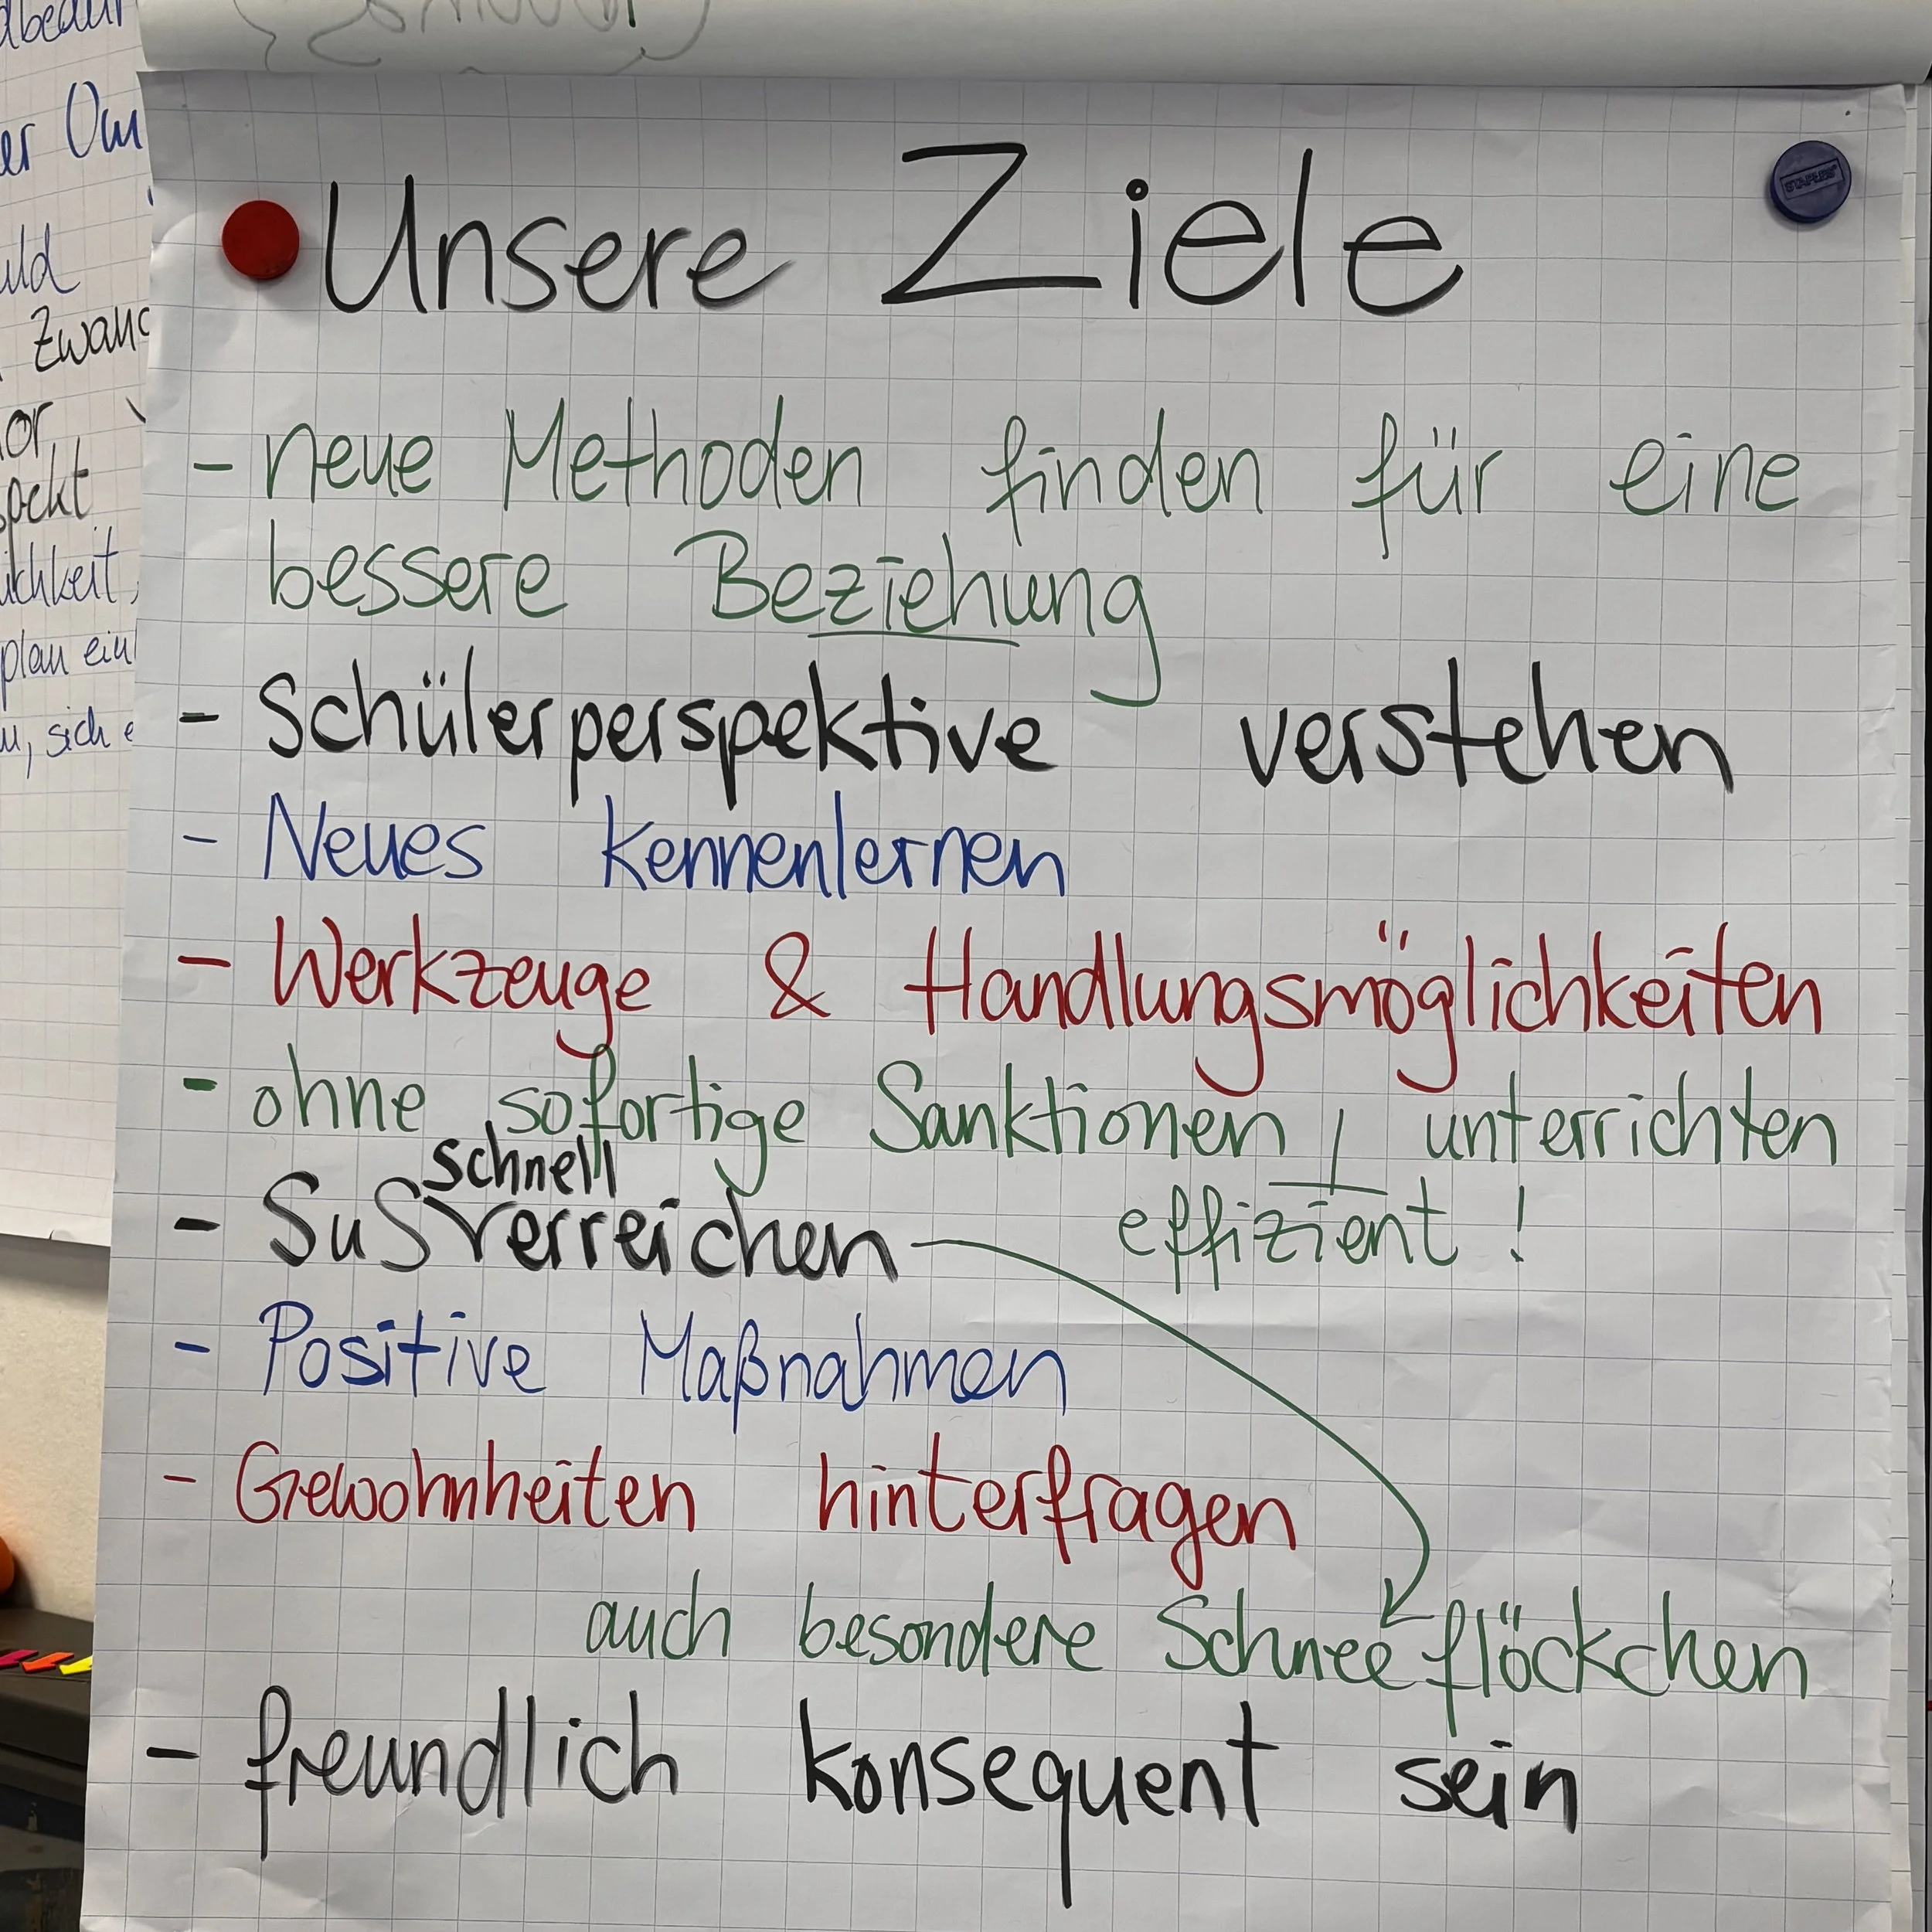 Unsere Ziele
- neue Methoden finden für eine
bessere Beziehung
- Schülerperspektive verstehen
- Neues kennenlernen
- Werkzeuge & Handlungsmöglichkeiten
- ohne sofortige Sanktionen, unterrichten
effizient!
schnell
- SuS erreichen
- Positive Maßnahmen
- Gewohnheiten hinterfragen
auch besondere Schneeflöckchen
- freundlich konsequent sein
STAPLES
Zwang
plan
, sich